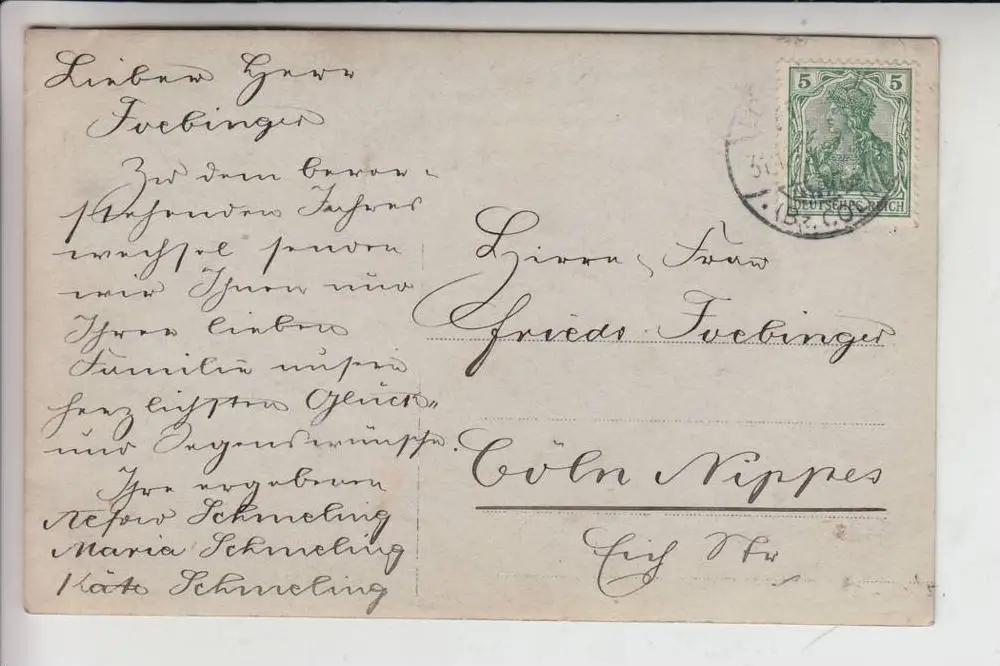 Lieber Herr
Foebinger
Zu dem bevor-
stehenden Jahres
wechsel senden
wir Ihnen und
Ihrer lieben
Familie unsere
herzlichsten Glück-
und Segenswünsche.
Ihre ergebenen
Schmeling
Maria Schmeling
Käte Schmeling
5 5
DEUTSCHES REICH
(Bz. CÖL
Frau
Foebinger
Cöln Nippes
Str